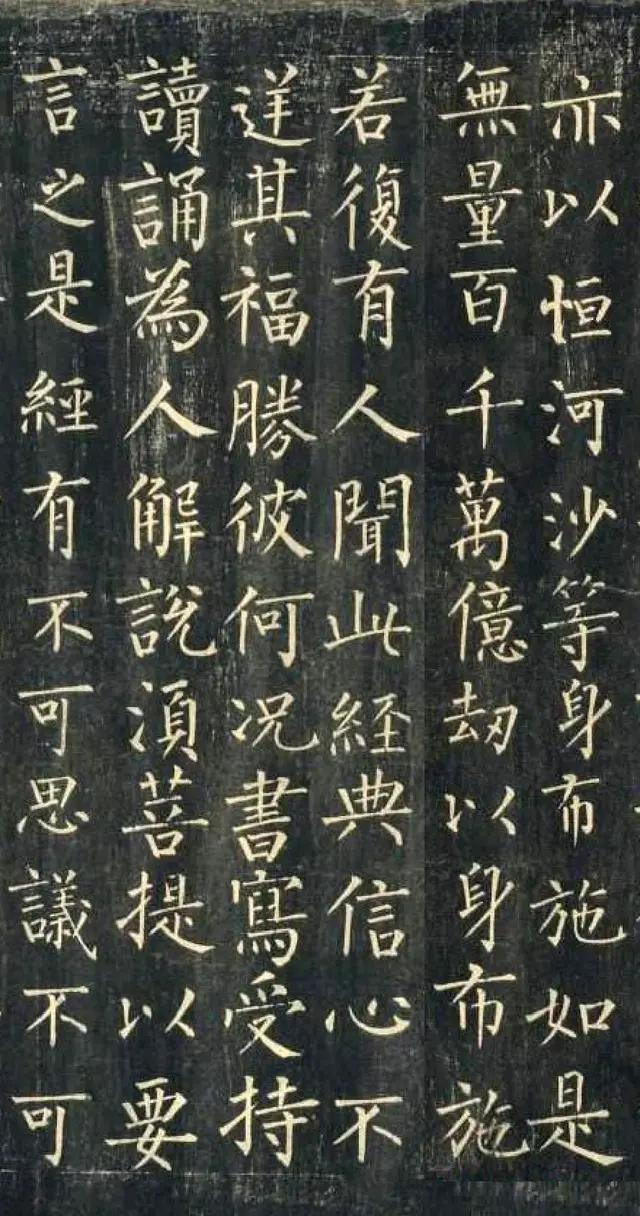 亦以恒河沙等身布施如是
無量百千萬億刼以身布施
若復有人聞此經典信心不
逆其福勝彼何况書寫受持
讀誦為人解說湏菩提以要
言之是經有不可思議不可